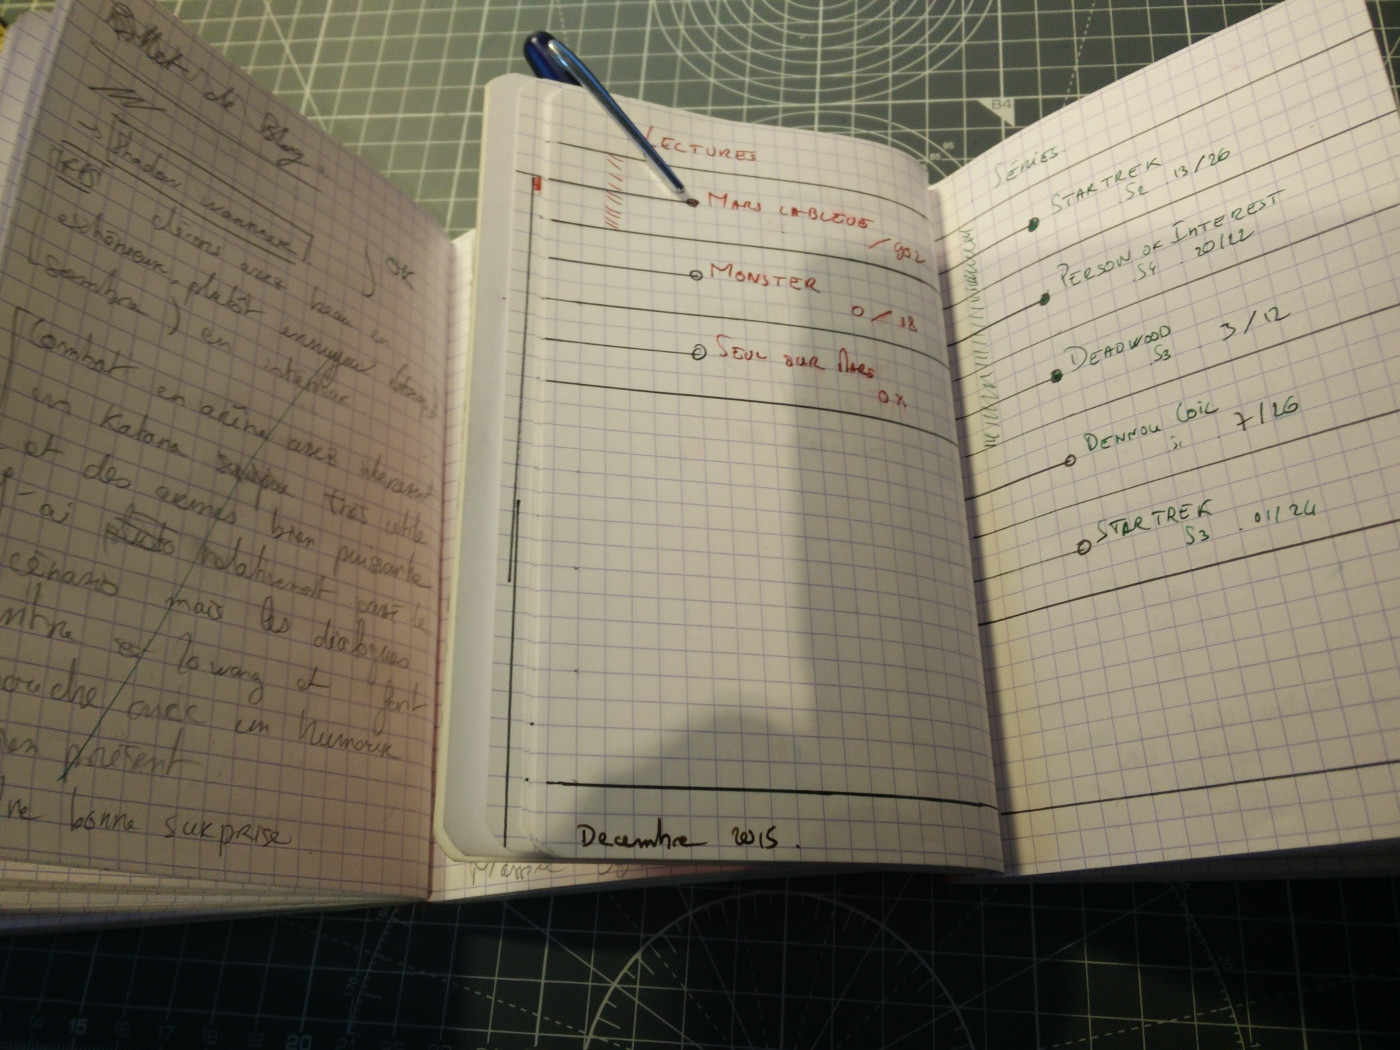 Billet de Blog
→ Shadow warrior
FPS
décors assez beau en
extérieur, plutôt ennuyeux
sombre ) en intérieur
OK
Combat en arène assez interessant
un Katana très utile
et des armes bien puissante
j'ai relativement passé le
cénario mais les dialogues
ntre lo wang et font
ouche avec un humour
en présent
ne bonne surprise
LECTURES
MARS LA BLEUE
/ 902
MONSTER
0 / 18
SEUL SUR MARS
0x
Decembre 2015.
SERIES
STAR TREK
S2 13/26
PERSON OF INTEREST
S4 20/22
DEADWOOD
S3 3/12
DENNOU COIL
7/26
STAR TREK
S3 .01/24
B4
15
20